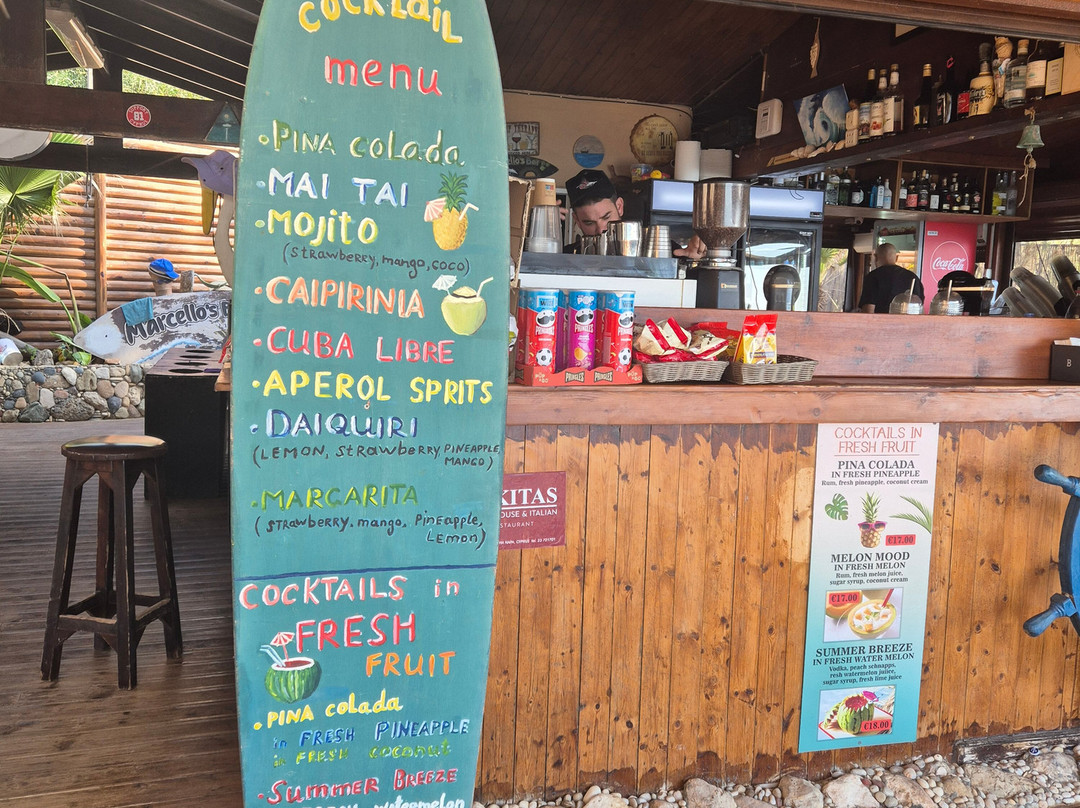 COCKTAIL
menu
• PINA COLADA
• MAI TAI
• MOJITO
(Strawberry, mango, coco)
• CAIPIRINIA
• CUBA LIBRE
• APEROL SPRITS
• DAIQUIRI
(LEMON, Strawberry, PINEAPPLE,
MANGO)
• MARGARITA
(Strawberry, mango, Pineapple,
Lemon)
COCKTAILS in
FRESH
FRUIT
• PINA colada
in FRESH PINEAPPLE
in FRESH coconut
• Summer BREEZE
watermelon
81
Marcello's
PRINGLES
Coca-Cola
KITAS
OUSE & ITALIAN
STAURANT
COCKTAILS IN
FRESH FRUIT
PINA COLADA
IN FRESH PINEAPPLE
Rum, fresh pineapple, coconut cream
€17.00
MELON MOOD
IN FRESH MELON
Rum, fresh melon juice,
sugar syrup, coconut cream
€17.00
SUMMER BREEZE
IN FRESH WATER MELON
Vodka, peach schnapps,
resh watermelon juiice,
sugar syrup, fresh lime juice
€18.00
B